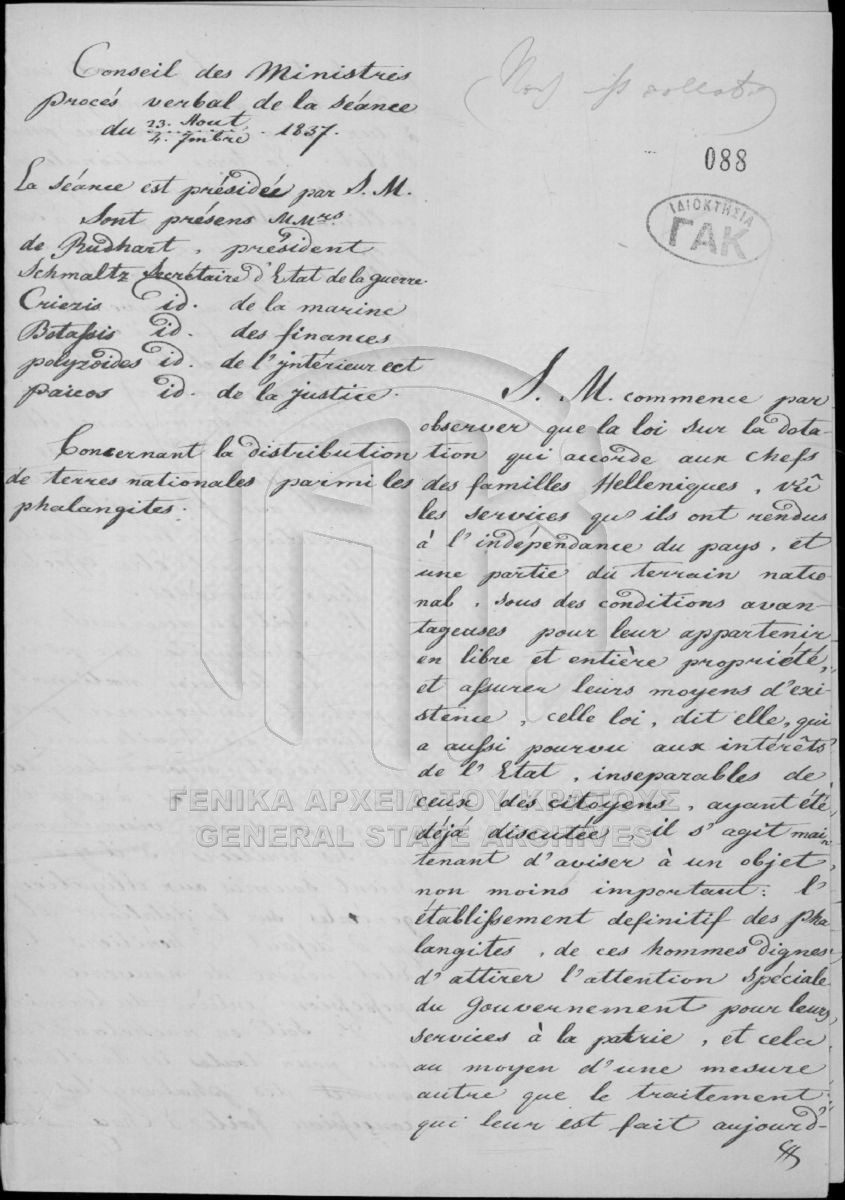 Conseil des Ministres
procés verbal de la séance
du 23. Aout / 4. 7mbre . 1837.
088
ΙΔΙΟΚΤΗΣΙΑ
ΓΑΚ
La séance est présidée par S. M.
Sont présens MMrs
de Rudhart, président
Schmaltz Secrétaire d'Etat de la guerre.
Criezis id. de la marine
Botassis id. des finances
polyzoïdes id. de l'jntérieur ect
païcos id. de la justice.
Concernant la distribution
de terres nationales parmi les
phalangites.
S. M. commence par
observer que la loi sur la dota-
tion qui accorde aux chefs
des familles Helleniques, vû
les services qu'ils ont rendus
à l'indépendance du pays, et
une partie du terrain natio-
nal, sous des conditions avan-
tageuses pour leur appartenir
en libre et entière propriété,
et assurer leurs moyens d'exi-
stence, celle loi, dit elle, qui
a aussi pourvu aux intérêts
de l'Etat, inseparables de
ceux des citoyens, ayant été
déjá discutée il s'agit main
tenant d'aviser à un objet,
non moins important: l'
établissement definitif des pha-
langites, de ces hommes dignes
d'attirer l'attention spéciale
du Gouvernement pour leurs
services à la patrie, et cela
au moyen d'une mesure
autre que le traitement
qui leur est fait aujourd-
ΓΕΝΙΚΑ ΑΡΧΕΙΑ ΤΟΥ ΚΡΑΤΟΥΣ
GENERAL STATE ARCHIVES